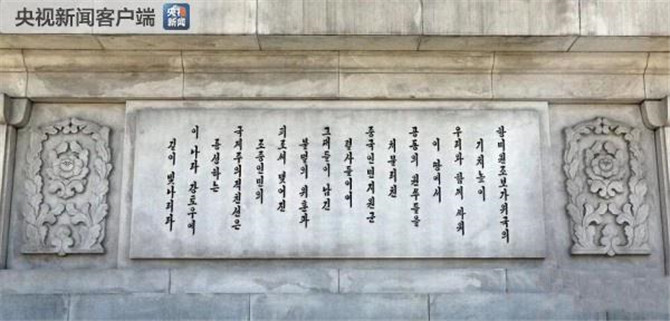 央视新闻客户端
央视
新闻
항미원조보가위국의
기치높이
우리와 함께 싸워
이 땅에서
공동의 원쑤들을
쳐물리친
중국인민지원군
렬사들이여
그대들이 남긴
불멸의 위훈과
피로써 맺어진
조중인민의
국제주의적친선은
륭성하는
이 나라 강토우에
길이 빛나리라